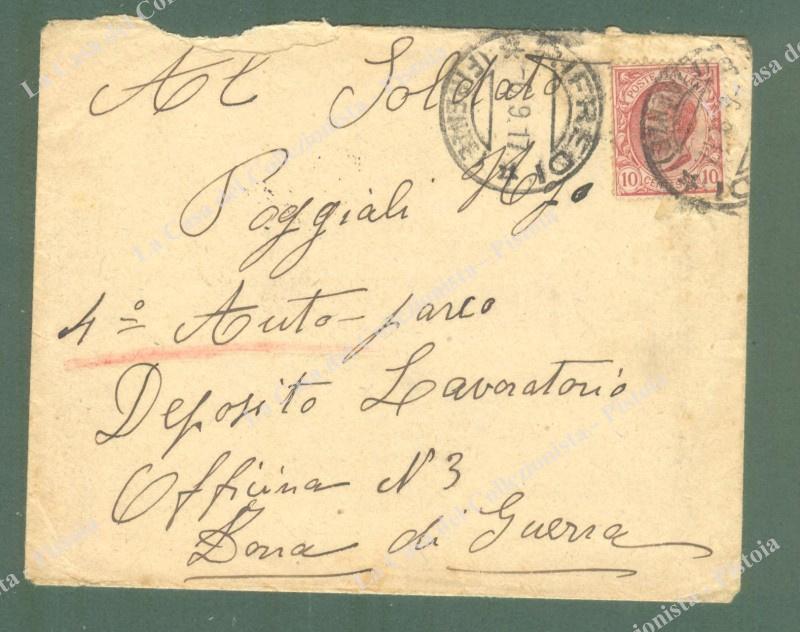 Al Soldato
Poggiali Ugo
4º Auto-parco
Deposito Lavoratorio
Officina N 3
Zona di Guerra
RIFREDI
(FIRENZE)
9.17
POSTE
10 CENT 10
La Casa del Collezionista - Pistoia